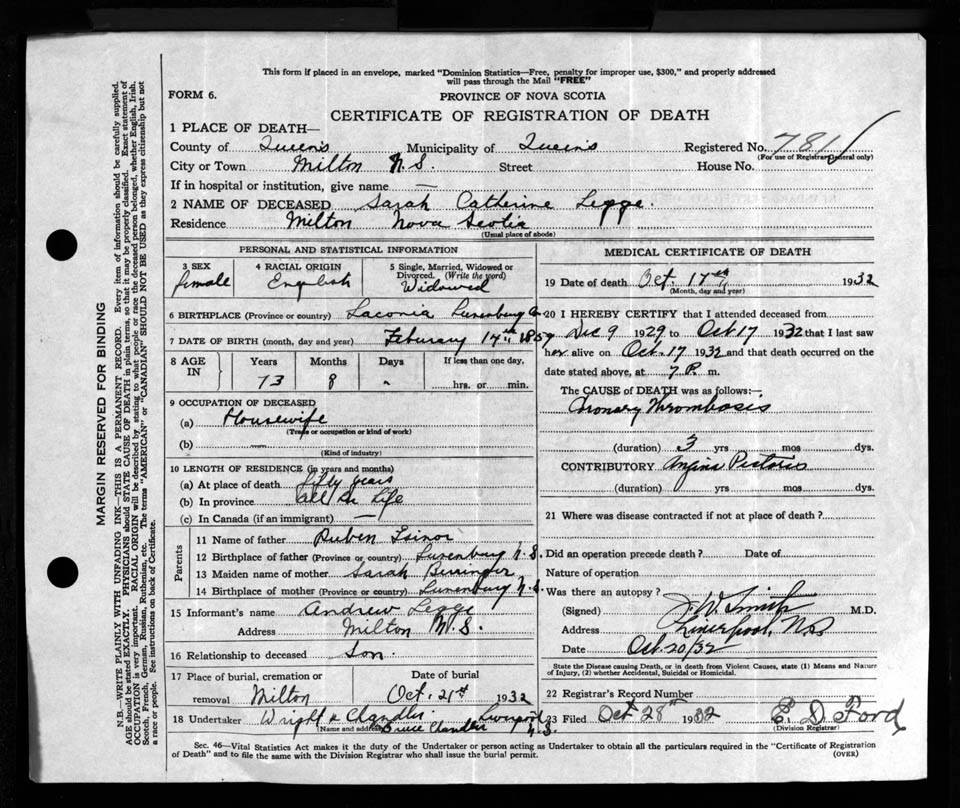 This form if placed in an envelope, marked "Dominion Statistics—Free, penalty for improper use, $300," and properly addressed
will pass through the Mail "FREE"
FORM 6.
PROVINCE OF NOVA SCOTIA
CERTIFICATE OF REGISTRATION OF DEATH
1 PLACE OF DEATH—
County of Queens Municipality of Queens Registered No. 7811
(For use of Registrar General only)
City or Town Milton N.S. Street House No.
If in hospital or institution, give name —
2 NAME OF DECEASED Sarah Catherine Legge.
Residence Milton Nova Scotia
(Usual place of abode)
PERSONAL AND STATISTICAL INFORMATION
3 SEX 4 RACIAL ORIGIN 5 Single, Married, Widowed or
Divorced. (Write the word)
female English Widowed
6 BIRTHPLACE (Province or country) Laconia Lunenburg Co
7 DATE OF BIRTH (month, day and year) Feburary 17th 1859
8 AGE IN Years Months Days If less than one day,
73 8 hrs. or min.
9 OCCUPATION OF DECEASED
(a) Housewife
(Trade or occupation or kind of work)
(b) —
(Kind of industry)
10 LENGTH OF RESIDENCE (in years and months)
(a) At place of death fifty years
(b) In province all her life
(c) In Canada (if an immigrant) —
Parents
11 Name of father Ruben
12 Birthplace of father (Province or country) Lunenburg N.S.
13 Maiden name of mother Sarah Berringer
14 Birthplace of mother (Province or country) Lunenburg N.S.
15 Informant's name Andrew Legge
Address Milton N.S.
16 Relationship to deceased Son.
17 Place of burial, cremation or Date of burial
removal Milton Oct. 21st 1932
18 Undertaker Wright & Chandler Liverpool
(Name and address) Bruce Chandler N.S.
MEDICAL CERTIFICATE OF DEATH
19 Date of death Oct. 17th 1932
(Month, day and year)
20 I HEREBY CERTIFY that I attended deceased from
Dec 9 1929 to Oct 17 1932 that I last saw
her alive on Oct. 17 1932 and that death occurred on the
date stated above, at 7 P. m.
The CAUSE of DEATH was as follows:—
Coronary Thrombosis
(duration) 3 yrs mos dys.
CONTRIBUTORY Angina Pectoris
(duration) yrs mos dys.
21 Where was disease contracted if not at place of death?
Did an operation precede death? Date of
Nature of operation
Was there an autopsy?
(Signed) J. W. Smith M.D.
Address Liverpool, N.S
Date Oct. 20/32
State the Disease causing Death, or in death from Violent Causes, state (1) Means and Nature
of Injury, (2) whether Accidental, Suicidal or Homicidal.
22 Registrar's Record Number
23 Filed Oct 28th 1932 E. D. Ford
(Division Registrar)
Sec. 46—Vital Statistics Act makes it the duty of the Undertaker or person acting as Undertaker to obtain all the particulars required in the "Certificate of Registration
of Death" and to file the same with the Division Registrar who shall issue the burial permit. (OVER)
MARGIN RESERVED FOR BINDING
N.B.—WRITE PLAINLY WITH UNFADING INK—THIS IS A PERMANENT RECORD. Every item of information should be carefully supplied.
AGE should be stated EXACTLY. PHYSICIANS should STATE CAUSE OF DEATH in plain terms, so that it may be properly classified. Exact statement of
OCCUPATION is very important. RACIAL ORIGIN will be described by stating to what people or race the deceased person belonged, whether English, Irish,
Scotch, French, German, Russian, Ruthenian, etc. The terms "AMERICAN" or "CANADIAN" SHOULD NOT BE USED as they express citizenship but not
a race or people. See instructions on back of Certificate.